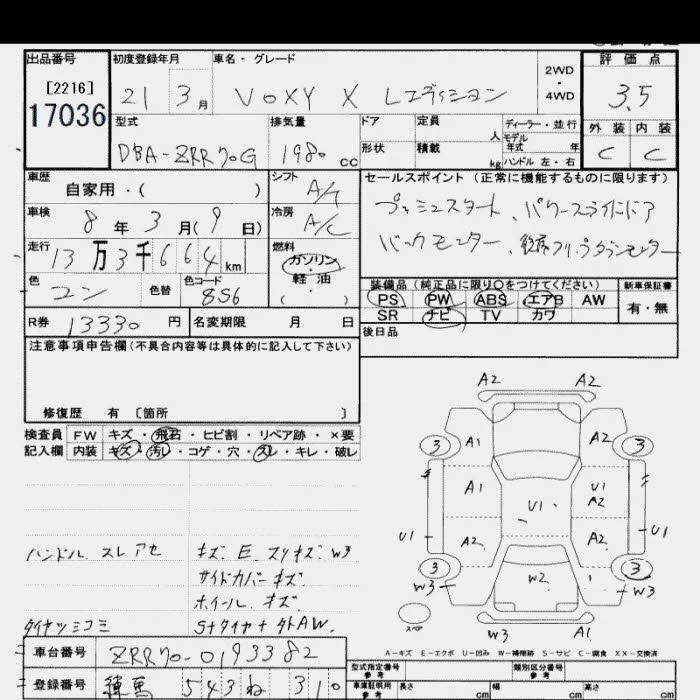 出品番号 初度登録年月 車名・グレード 2WD・4WD 評価点
[2216] 17036
21 3月 VOXY X Lエディション 3.5
型式 排気量 ドア 定員 人 ディーラー・並行 外装 内装
DBA-ZRR70G 1980 CC 形状 積載 kg モデル年式 年 ハンドル 左・右 C C
車歴 自家用・( ) シフト A/T
セールスポイント(正常に機能するものに限ります)
車検 8年 3月(9日) 冷房 A/C
プッシュスタート、パワースライドドア
走行 13万3千664km 燃料 ガソリン・軽油( )
バックモニター、
色 コン 色替 色コード 8S6
装備品(純正品に限り○をつけてください) 新車保証書
PS PW ABS エアB AW 有・無
SR ナビ TV カワ
R券 13330円 名変期限 月 日
後日品
注意事項申告欄(不具合内容等は具体的に記入して下さい)
修復歴 有 〔箇所 〕
検査員 FW キズ・飛石・ヒビ割・リペア跡・×要
記入欄 内装 キズ・汚レ・コゲ・穴・スレ・キレ・破レ
A2 A2
3 A1 A2 3
A1 U1 U1 A2
U1 A2 A2 U1
3 W2 3
W3 W3
スペア
W3 A1
ハンドル スレアセ
キズ E スリキズ W3
サイドカバーキズ
ホイール キズ
タイヤツミコミ
S+タイヤ+外AW.
A-キズ E-エクボ U-凹み W-補修跡 S-サビ C-腐食 XX-交換済
車台番号 ZRR70-0193382
型式指定番号 参考 類別区分番号 参考
登録番号 練馬 543 ね 310
車庫証明用 参考 長さ cm 幅 cm 高さ cm